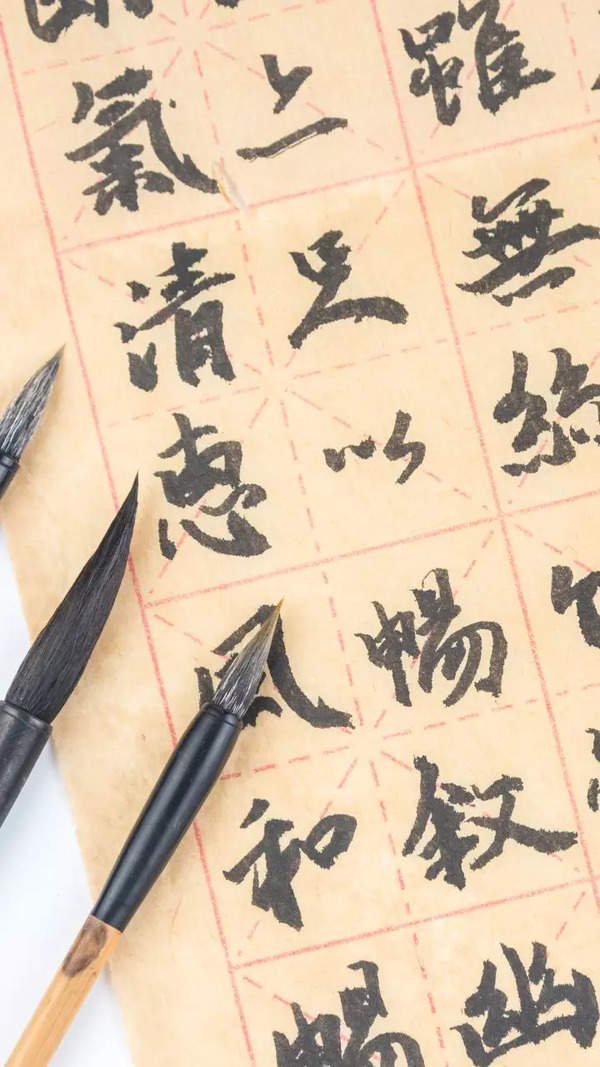 雖無絲竹
亦足以暢叙幽
氣清惠風和暢